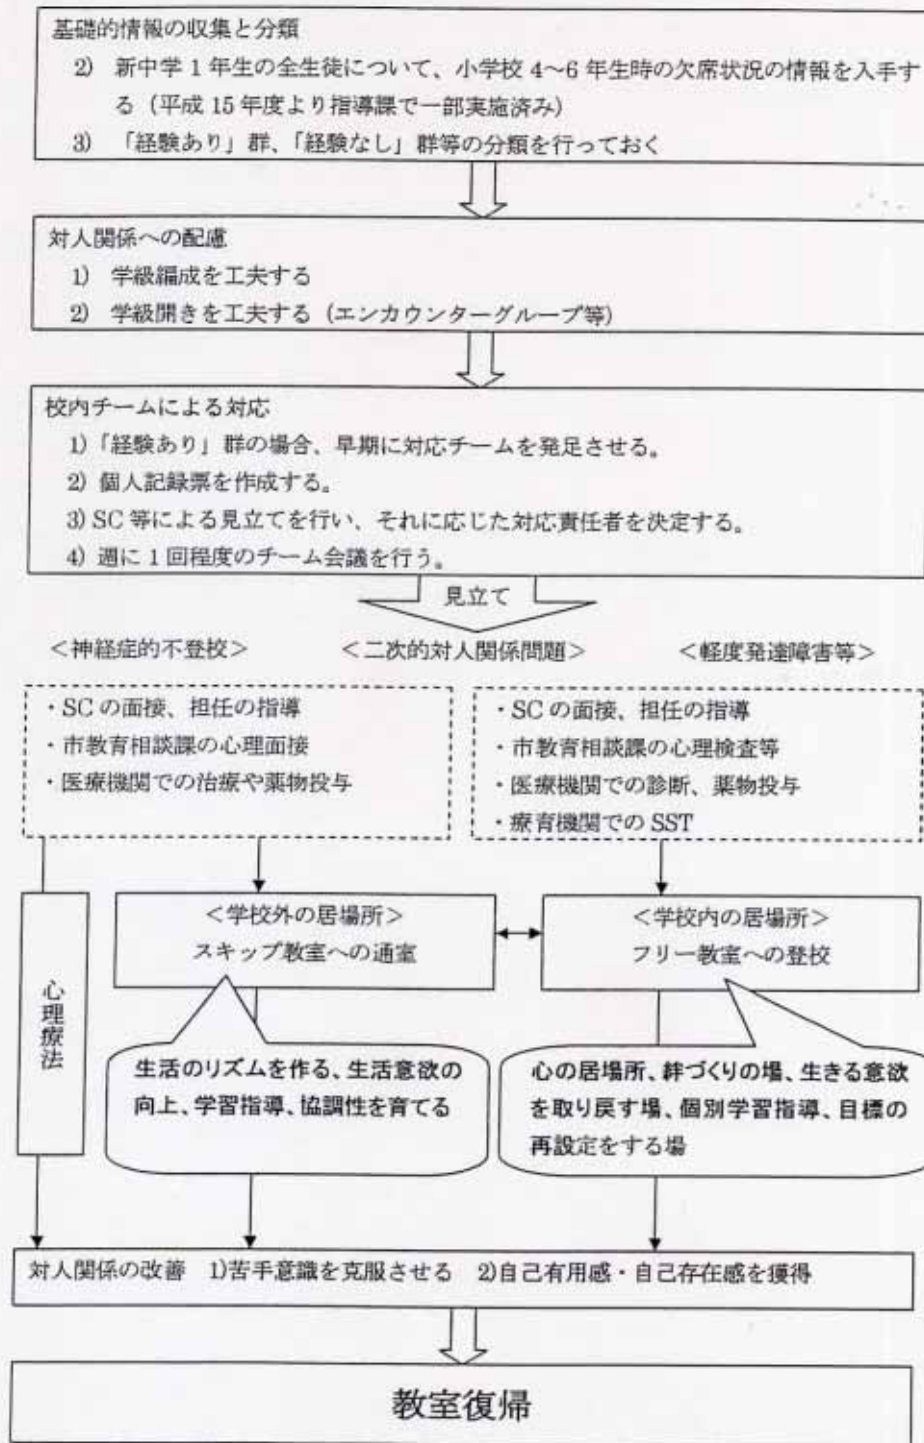 基礎的情報の収集と分類
2) 新中学1年生の全生徒について、小学校4～6年生時の欠席状況の情報を入手す
る（平成15年度より指導課で一部実施済み）
3) 「経験あり」群、「経験なし」群等の分類を行っておく
対人関係への配慮
1) 学級編成を工夫する
2) 学級開きを工夫する（エンカウンターグループ等）
校内チームによる対応
1)「経験あり」群の場合、早期に対応チームを発足させる。
2) 個人記録票を作成する。
3)SC等による見立てを行い、それに応じた対応責任者を決定する。
4) 週に1回程度のチーム会議を行う。
見立て
＜神経症的不登校＞ ＜二次的対人関係問題＞ ＜軽度発達障害等＞
・SCの面接、担任の指導
・市教育相談課の心理面接
・医療機関での治療や薬物投与
・SCの面接、担任の指導
・市教育相談課の心理検査等
・医療機関での診断、薬物投与
・療育機関でのSST
心理療法
＜学校外の居場所＞
スキップ教室への通室
＜学校内の居場所＞
フリー教室への登校
生活のリズムを作る、生活意欲の
向上、学習指導、協調性を育てる
心の居場所、絆づくりの場、生きる意欲
を取り戻す場、個別学習指導、目標の
再設定をする場
対人関係の改善 1)苦手意識を克服させる 2)自己有用感・自己存在感を獲得
教室復帰